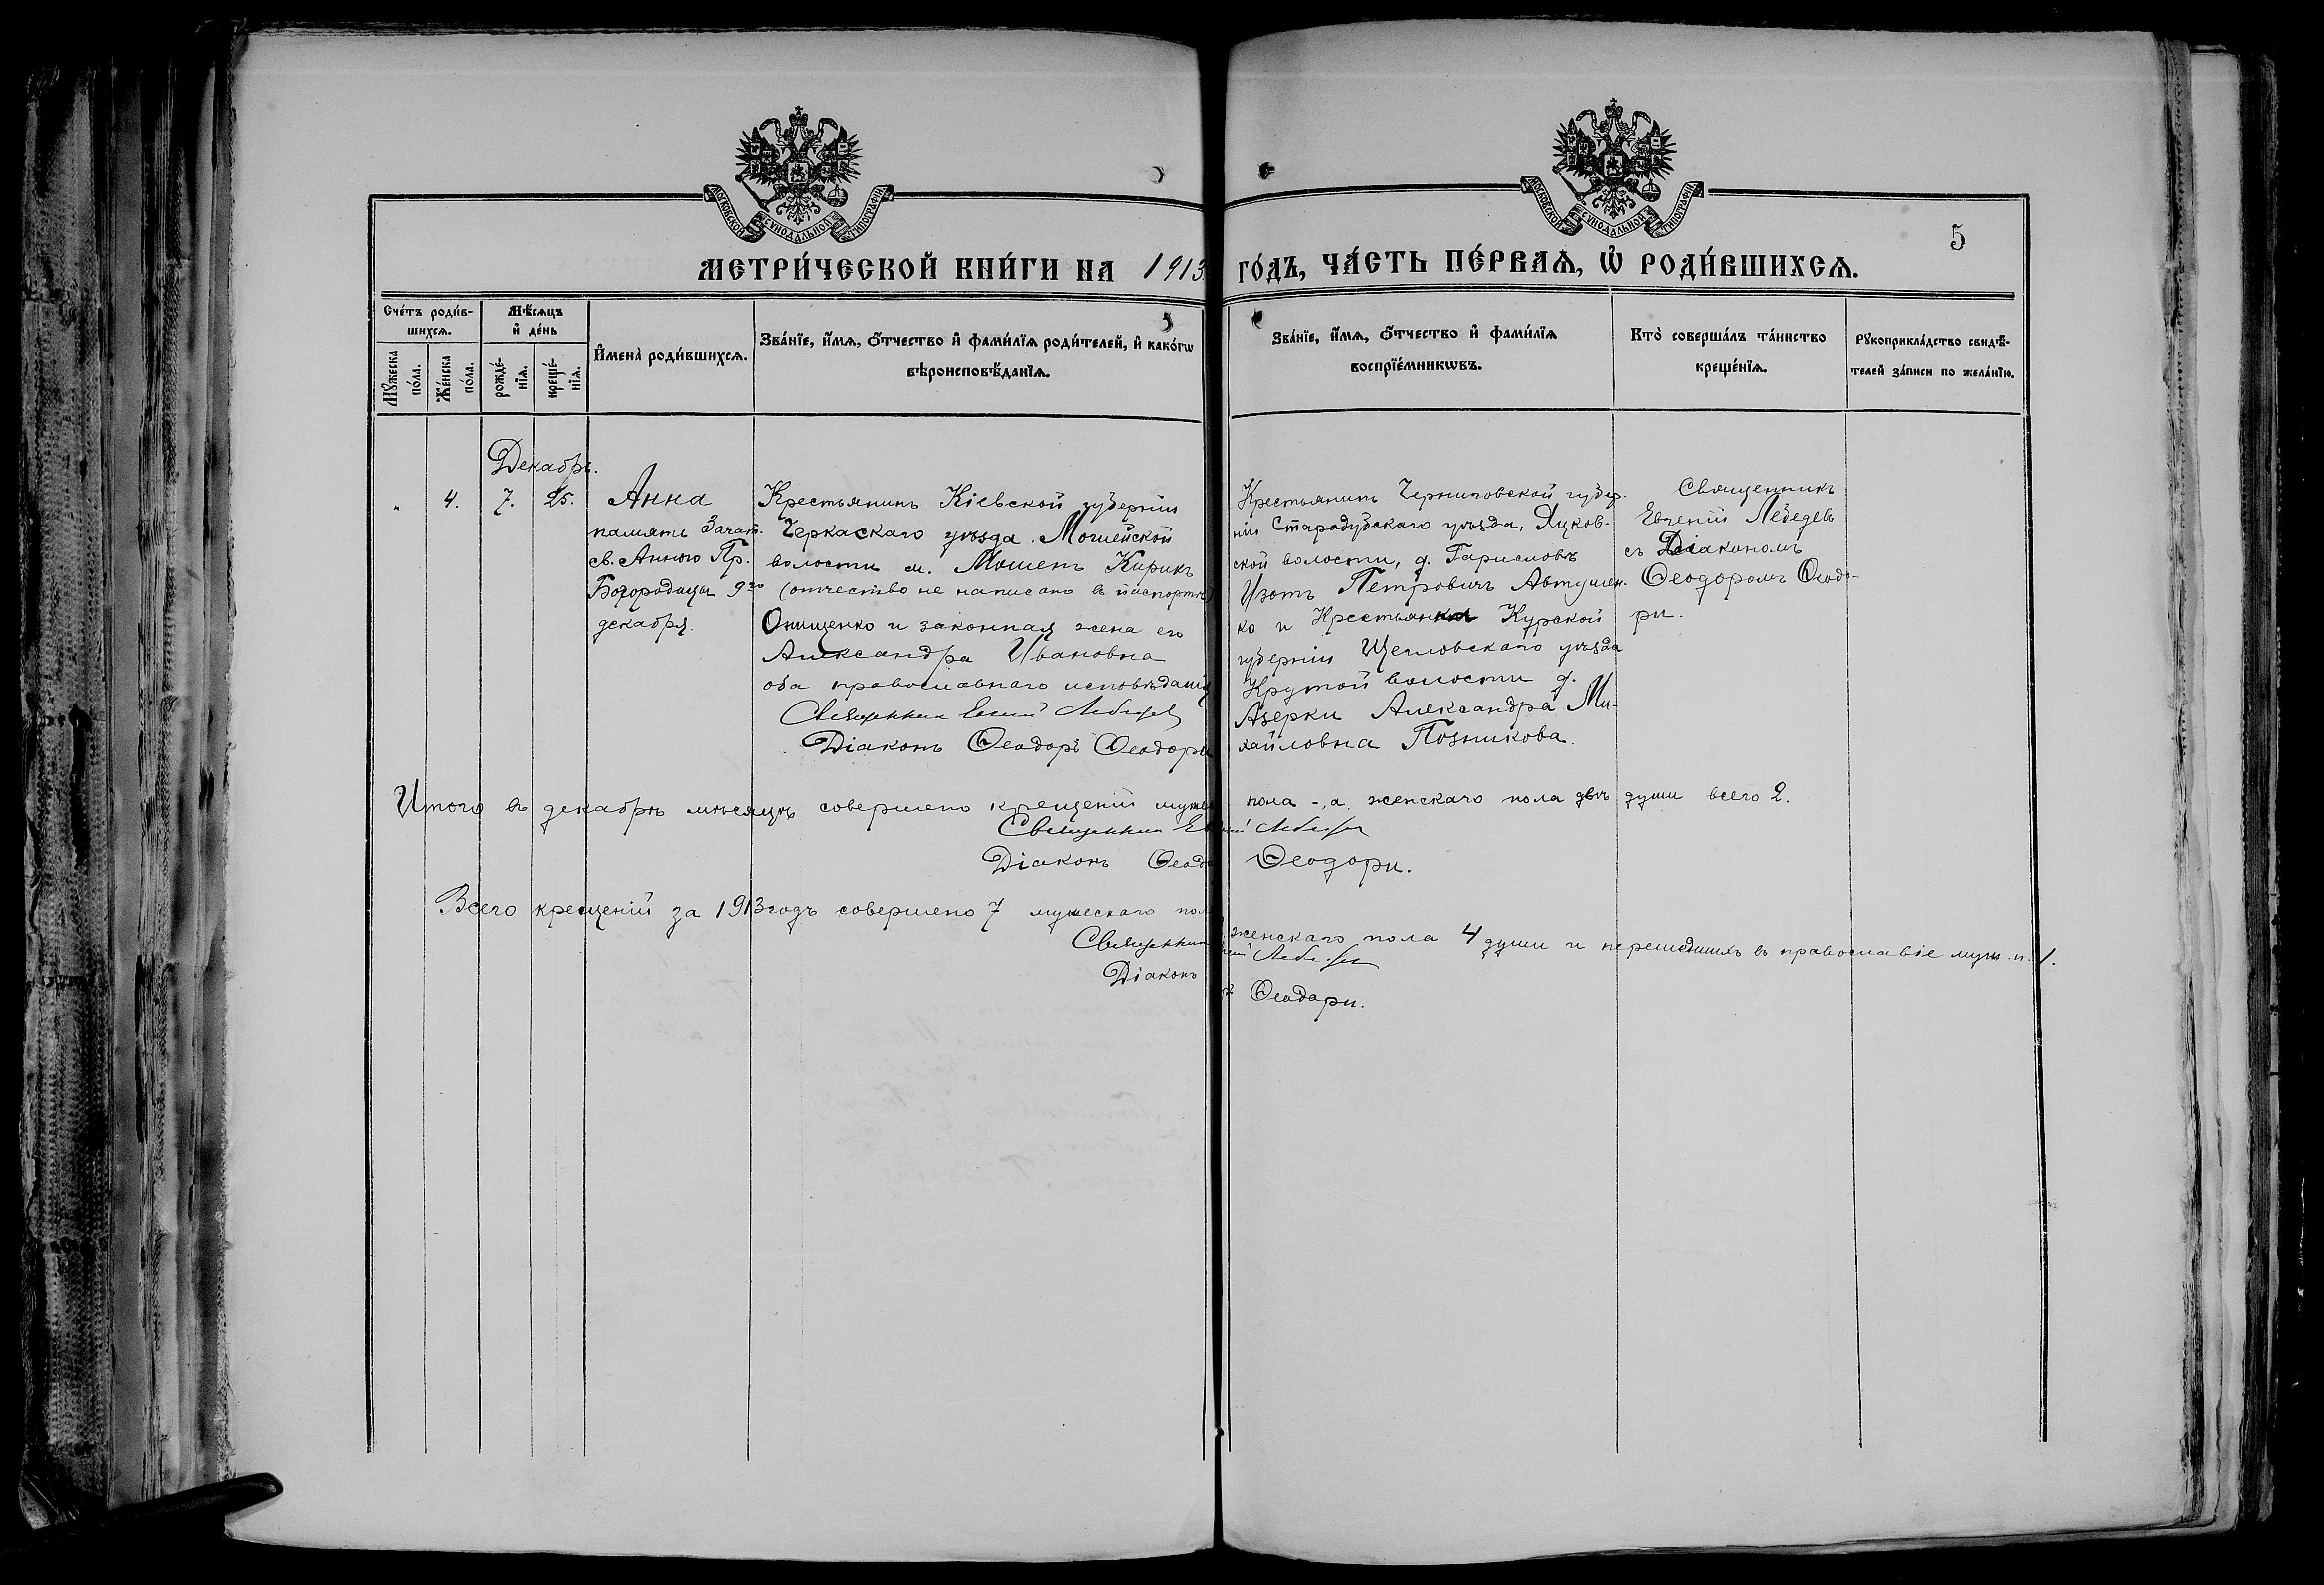 МОСКОВСКОЙ СѴНОДАЛЬНОЙ ТИПОГРАФІИ
МОСКОВСКОЙ СѴНОДАЛЬНОЙ ТИПОГРАФІИ
5
МЕТРИ́ЧЕСКОЙ КНИ́ГИ НА 1913 ГО́ДЪ, ЧА́СТЬ ПЕ́РВАѦ, Ѡ҆ РОДИ́ВШИХСѦ.
Сче́тъ роди́в-
шихсѧ.
Мꙋ́жеска
по́ла.
Же́нска
по́ла.
Мѣ́сѧцъ
и҆ де́нь
рожде́-
нїѧ.
креще́-
нїѧ.
И҆мена̀ роди́вшихсѧ.
Зва́нїе, и҆́мѧ, ѻ҆́тчество и҆ фами́лїѧ роди́телей, и҆ како́гѡ
вѣроисповѣ́данїѧ.
Зва́нїе, и҆́мѧ, ѻ҆́тчество и҆ фами́лїѧ
воспрїе́мникѡвъ.
Кто̀ соверша́лъ та́инство
креще́нїѧ.
Рꙋкоприкла́дство свидѣ́-
телей за́писи по жела́нїю.
Декабрь.
„ 4. 7. 25.
Анна
память Зачат.
св. Анною Пр.
Богородицы 9го
декабря.
Крестьянинъ Кіевской губерніи
Черкаскаго уѣзда. Мошейской
волости м. Мошетъ Кирикъ
(отчество не написано въ паспортѣ)
Онищенко и законная жена его
Александра Ивановна
оба православнаго исповѣданія
Священник Евгеній Лебедев
Діаконъ Ѳеодоръ Ѳеодори
Крестьянинъ Черниговской губер-
ніи Стародубскаго уѣзда, Яцков-
ской волости, д. Гарисловъ
Изотъ Петровичъ Автушен-
ко и Крестьянка Курской
губерніи Щегловскаго уѣзда
Крутой волости д.
Азерки Александра Ми-
хайловна Позникова.
Священникъ
Евгеній Лебедевъ
съ Діакономъ
Ѳеодоромъ Ѳеодо-
ри.
Итого въ декабрѣ мѣсяцѣ совершено крещеній муже пола -, а женскаго пола двѣ души всего 2.
Священник Евгеній Лебедев
Діаконъ Ѳеодо Ѳеодори.
Всего крещеній за 1913 годъ совершено 7 мужескаго пол женскаго пола 4 души и перешедшихъ въ православіе муж. п. 1.
Священник Лебедев
Діаконъ ръ Ѳеодори.